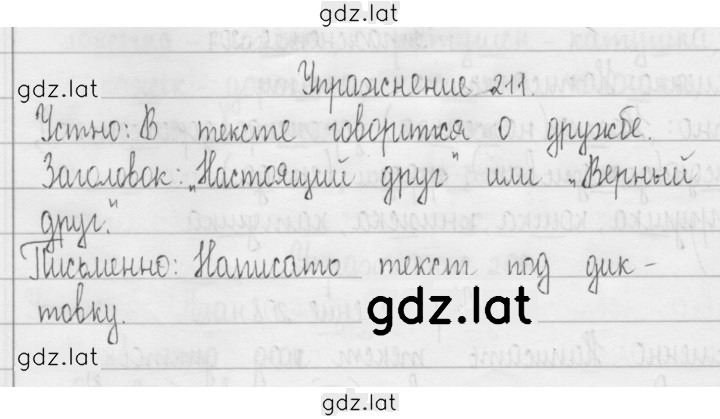 gdz.lat
gdz.lat
Упражнение 211.
Устно: В тексте говорится о дружбе.
Заголовок: „Настоящий друг" или „Верный
друг."
Письменно: Написать текст под дик-
товку.
gdz.lat
gdz.lat
gdz.lat